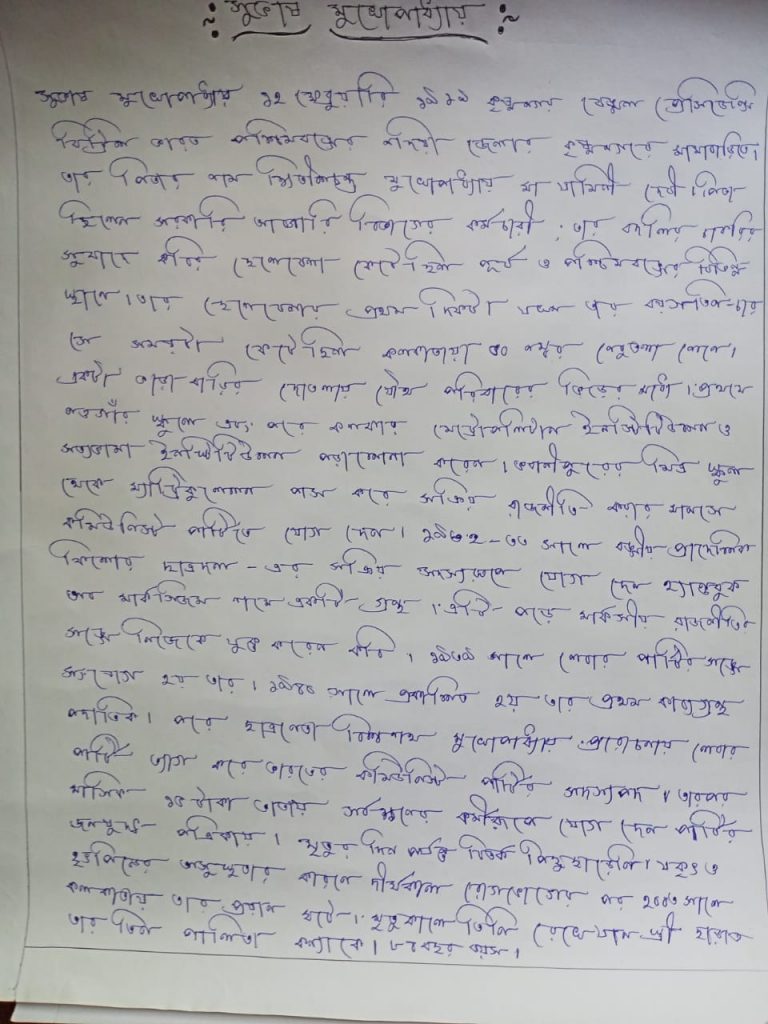 সুভাষ মুখোপাধ্যায়
সুভাষ মুখোপাধ্যায় ১২ ফেব্রুয়ারি ১৯১৯ কৃষ্ণনগর বেঙ্গল প্রেসিডেন্সি
ব্রিটিশ ভারত পশ্চিমবঙ্গের নদিয়া জেলার কৃষ্ণনগরে মামাবাড়িতে।
তার পিতার নাম ক্ষিতীশচন্দ্র মুখোপাধ্যায় মা যামিনী দেবী। পিতা
ছিলেন সরকারি আবগারি বিভাগের কর্মচারী; তার বদলির চাকরির
সুবাদে কবির ছেলেবেলা কেটেছিল পূর্ব ও পশ্চিমবঙ্গের বিভিন্ন
স্থানে। তার ছেলেবেলার প্রথম দিকটা যখন তার বয়স তিন-চার
সে সময়টা কেটেছিল কলকাতায় ৫০ নম্বর নেবুতলা লেনে।
একটা ভাড়া বাড়ির দোতলায় যৌথ পরিবারের ভিড়ের মধ্যে। প্রথমে
নওগাঁর স্কুলে এবং পরে কলকাতার মেট্রোপলিটান ইনস্টিটিউশন ও
সত্যভামা ইনস্টিটিউশনে পড়াশোনা করেন। ভবানীপুরের মিত্র স্কুল
থেকে ম্যাট্রিকুলেশন পাস করে সক্রিয় রাজনীতি করার মানসে
কমিউনিস্ট পার্টিতে যোগ দেন। ১৯৩২-৩৩ সালে বঙ্গীয় প্রাদেশিক
কিশোর ছাত্রদল-এর সক্রিয় সদস্যরূপে যোগ দেন হ্যান্ডবুক
অব মার্কসিজম নামে একটি গ্রন্থ। এটি পড়ে মার্কসীয় রাজনীতির
সঙ্গে নিজেকে যুক্ত করেন কবি। ১৯৩৯ সালে লেবার পার্টির সঙ্গে
সংযোগ হয় তার। ১৯৪০ সালে প্রকাশিত হয় তার প্রথম কাব্যগ্রন্থ
পদাতিক। পরে ছাত্রনেতা বিশ্বনাথ মুখোপাধ্যায় প্ররোচনায় লেবার
পার্টি ত্যাগ করে ভারতের কমিউনিস্ট পার্টির সদস্যপদ। তারপর
মাসিক ১৫ টাকা ভাতায় সর্বক্ষণের কর্মীরূপে যোগ দেন পার্টির
জনযুদ্ধ পত্রিকায়। মৃত্যুর দিন পর্যন্ত বিতর্ক পিছু ছাড়েনি। যকৃৎ ও
হৃদপিণ্ডের অসুস্থতার কারণে দীর্ঘকাল রোগভোগের পর ২০০৩ সালে
কলকাতায় তার প্রয়াণ ঘটে। মৃত্যুকালে তিনি রেখে যান স্ত্রী ছাড়াও
তার তিন পালিতা কন্যাকে। ৮৪ বছর বয়স।